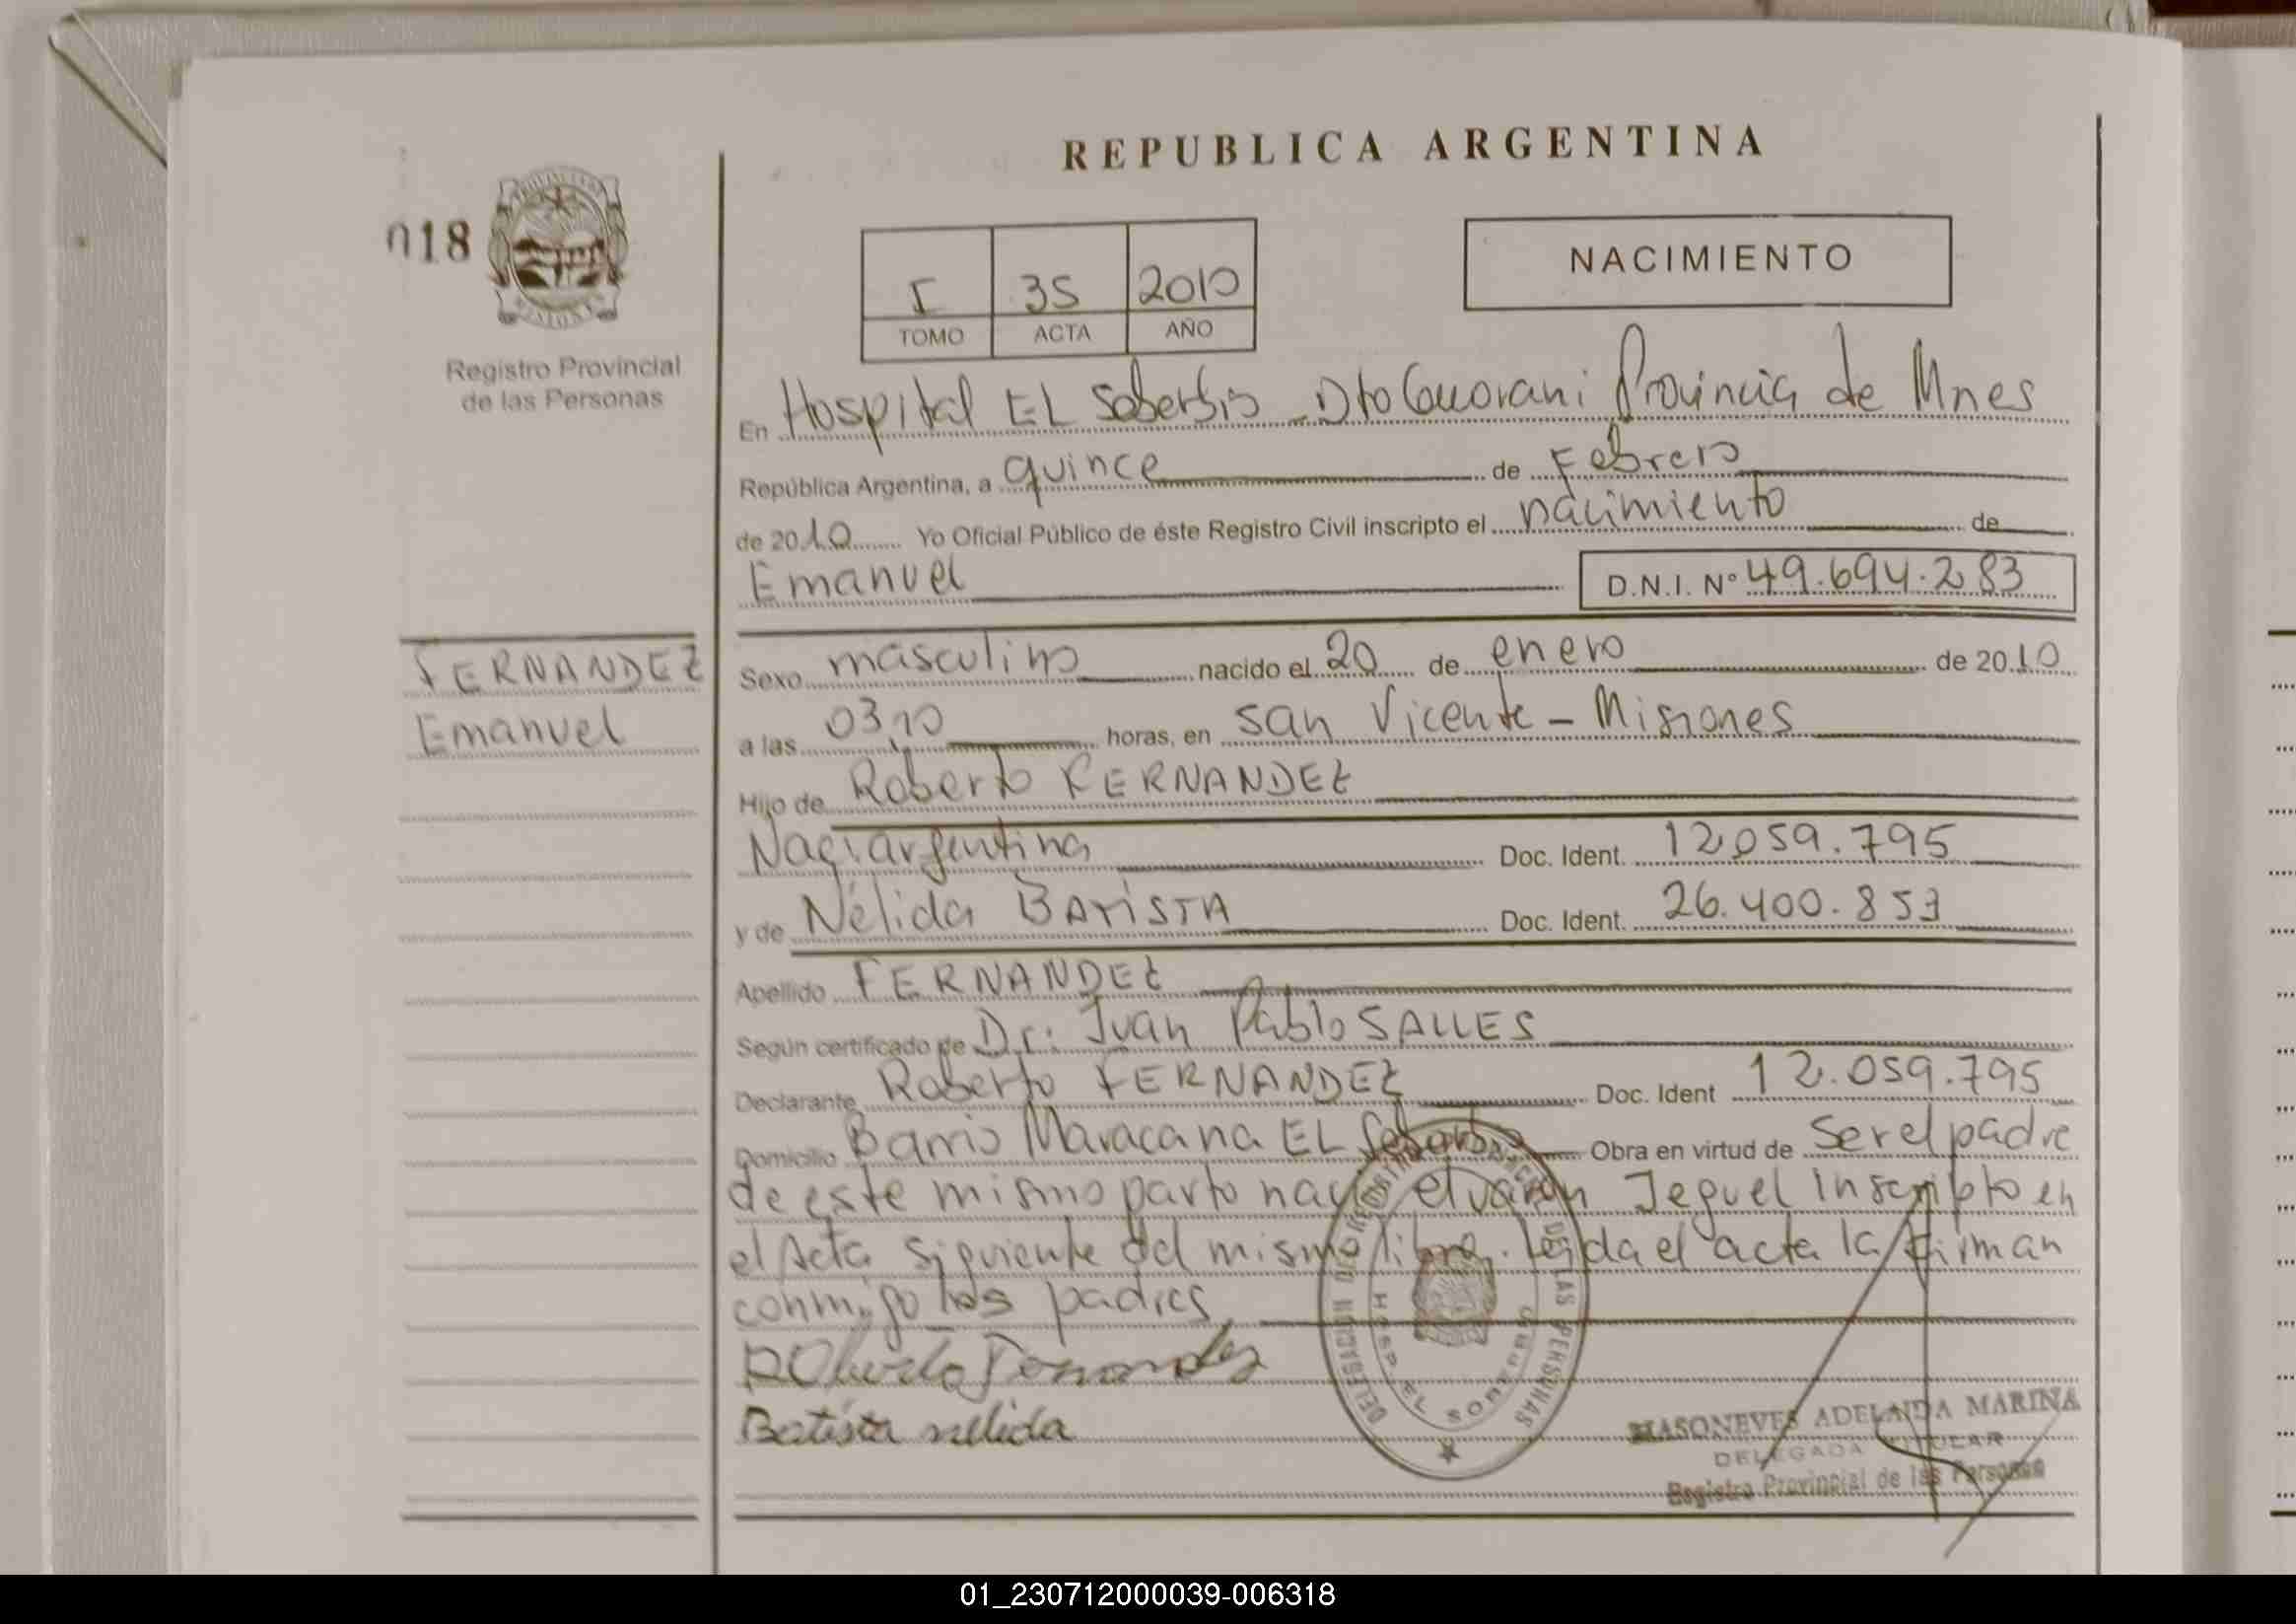 REPUBLICA ARGENTINA
018
I 35 2010
TOMO ACTA AÑO
NACIMIENTO
Registro Provincial
de las Personas
En Hospital EL Soberbio - Dto Guarani Provincia de Mnes
República Argentina, a quince de Febrero
de 2010 Yo Oficial Público de éste Registro Civil inscripto el nacimiento de
Emanuel D.N.I. Nº 49.694.283
FERNANDEZ
Emanuel
Sexo masculino nacido el 20 de enero de 2010
a las 03,10 horas, en San Vicente - Misiones
Hijo de Roberto FERNANDEZ
Nac: argentina Doc. Ident. 12.059.795
y de Nélida BATISTA Doc. Ident. 26.400.853
Apellido FERNANDEZ
Según certificado de Dr: Juan Pablo SALLES
Declarante Roberto FERNANDEZ Doc. Ident 12.059.795
Domicilio Barrio Maracana EL Soberbio Obra en virtud de Ser el padre
de este mismo parto nació el varon inscripto en
el Acta siguiente del mismo libro. Leida el acta la firman
conmigo los padres
Roberto Fernandez
Batista nelida
DELEGACION DE REGISTRO DE LAS PERSONAS
HOSP. EL SOBERBIO
MASONEVES ADELAIDA MARINA
DELEGADA TITULAR
Registro Provincial de las Personas
01_230712000039-006318